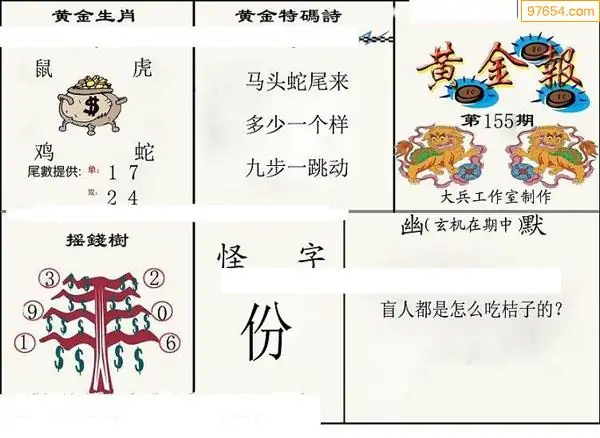 黄金生肖
鼠 虎
$
鸡 蛇
尾數提供: 单: 1 7
双: 2 4
黄金特碼詩
马头蛇尾来
多少一个样
九步一跳动
97654.com
黄金報
第155期
大兵工作室制作
摇錢樹
③ ②
⑨ ⓪
① ⑥
$ $ $ $ $ $ $ $ $ $
怪 字
份
幽(玄机在期中)默
盲人都是怎么吃桔子的?